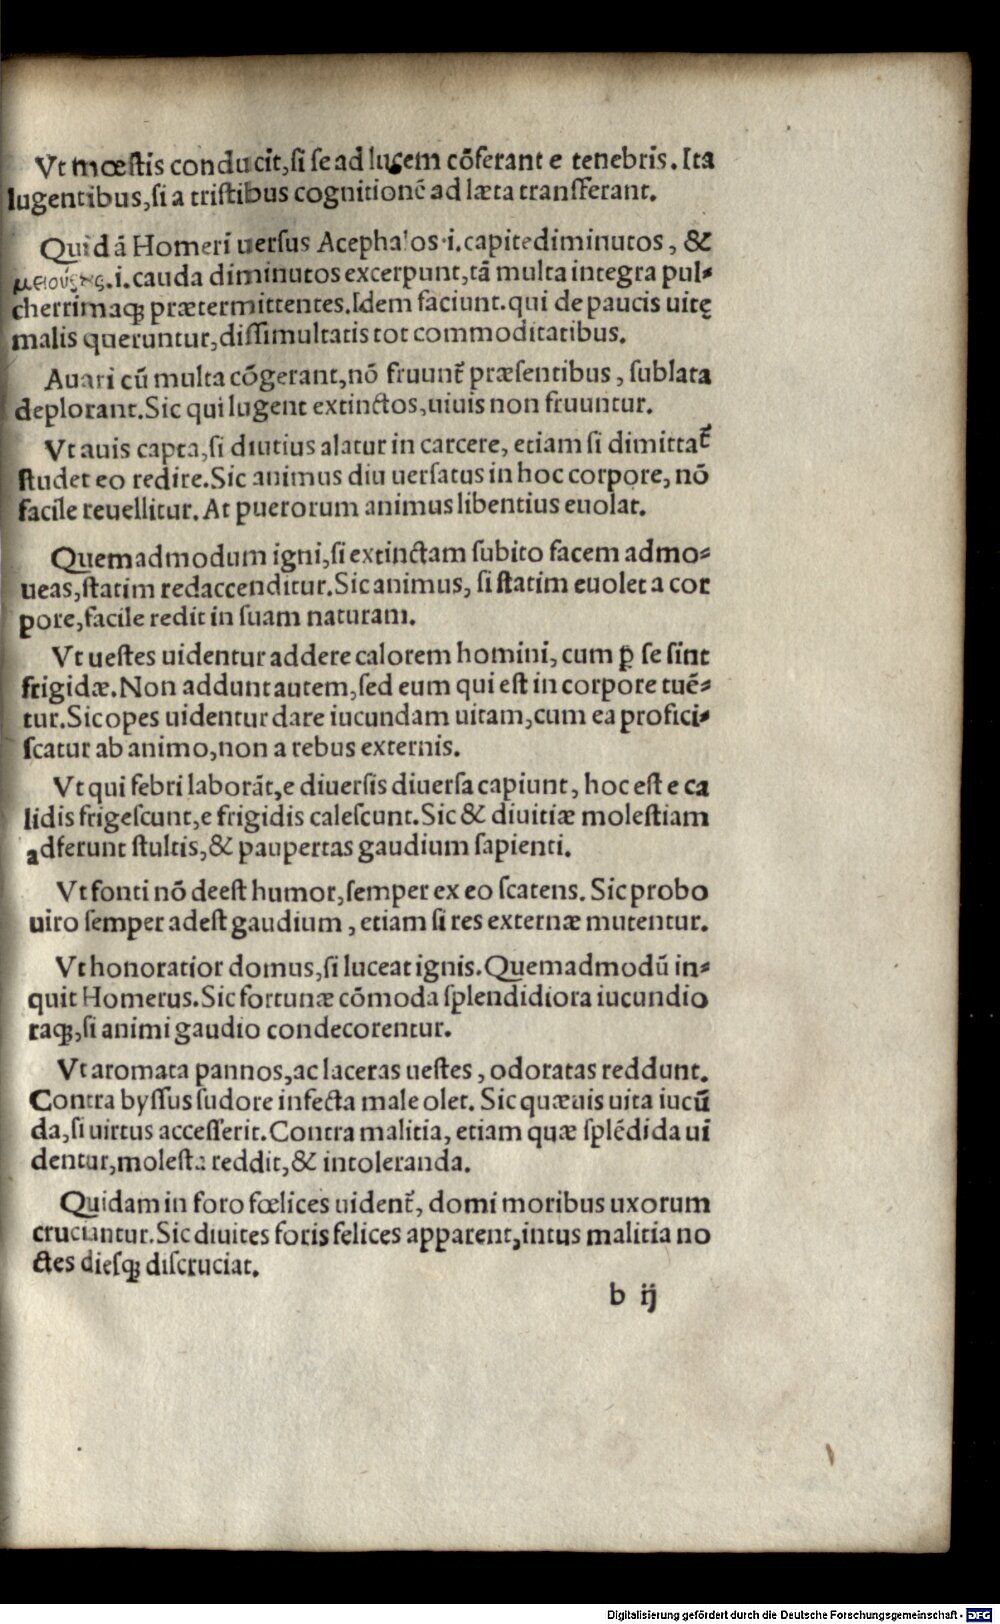 Vt mœſtis conducit,ſi ſe ad lucem cõferant e tenebris. Ita
lugentibus,ſi a triſtibus cognitionẽ ad læta tranſferant.
Quidã Homeri uerſus Acephalos.i.capite diminutos, &
.i.cauda diminutos excerpunt,tã multa integra pul⸗
cherrimaqꝫ prætermittentes.Idem faciunt.qui de paucis uitę
malis queruntur,diſſimultatis tot commoditatibus.
Auari cũ multa cõgerant,nõ fruunt᷑ præſentibus, ſublata
deplorant.Sic qui lugent extinctos,uiuis non fruuntur.
Vt auis capta,ſi diutius alatur in carcere, etiam ſi dimittat᷑
ſtudet eo redire.Sic animus diu uerſatus in hoc corpore, nõ
facile reuellitur. At puerorum animus libentius euolat.
Quemadmodum igni,ſi extinctam ſubito facem admo⸗
ueas,ſtatim redaccenditur.Sic animus, ſi ſtatim euolet a cor
pore,facile redit in ſuam naturam.
Vt ueſtes uidentur addere calorem homini, cum ꝑ ſe ſint
frigidæ.Non addunt autem,ſed eum qui eſt in corpore tuẽ⸗
tur.Sic opes uidentur dare iucundam uitam,cum ea profici⸗
ſcatur ab animo,non a rebus externis.
Vt qui febri laborãt,e diuerſis diuerſa capiunt, hoc eſt e ca
lidis frigeſcunt,e frigidis caleſcunt.Sic & diuitiæ moleſtiam
adferunt ſtultis,& paupertas gaudium ſapienti.
Vt fonti nõ deeſt humor,ſemper ex eo ſcatens. Sic probo
uiro ſemper adeſt gaudium, etiam ſi res externæ mutentur.
Vt honoratior domus,ſi luceat ignis.Quemadmodũ in⸗
quit Homerus.Sic fortunæ cõmoda ſplendidiora iucundio
raqꝫ,ſi animi gaudio condecorentur.
Vt aromata pannos,ac laceras ueſtes, odoratas reddunt.
Contra byſſus ſudore infecta male olet. Sic quæuis uita iucũ
da,ſi uirtus acceſſerit.Contra malitia, etiam quæ ſplẽdida ui
dentur,moleſta reddit,& intoleranda.
Quidam in foro fœlices uident᷑, domi moribus uxorum
cruciantur.Sic diuites foris felices apparent,intus malitia no
ctes dieſqꝫ diſcruciat.
b ij
Digitalisierung gefördert durch die Deutsche Forschungsgemeinschaft - DFG